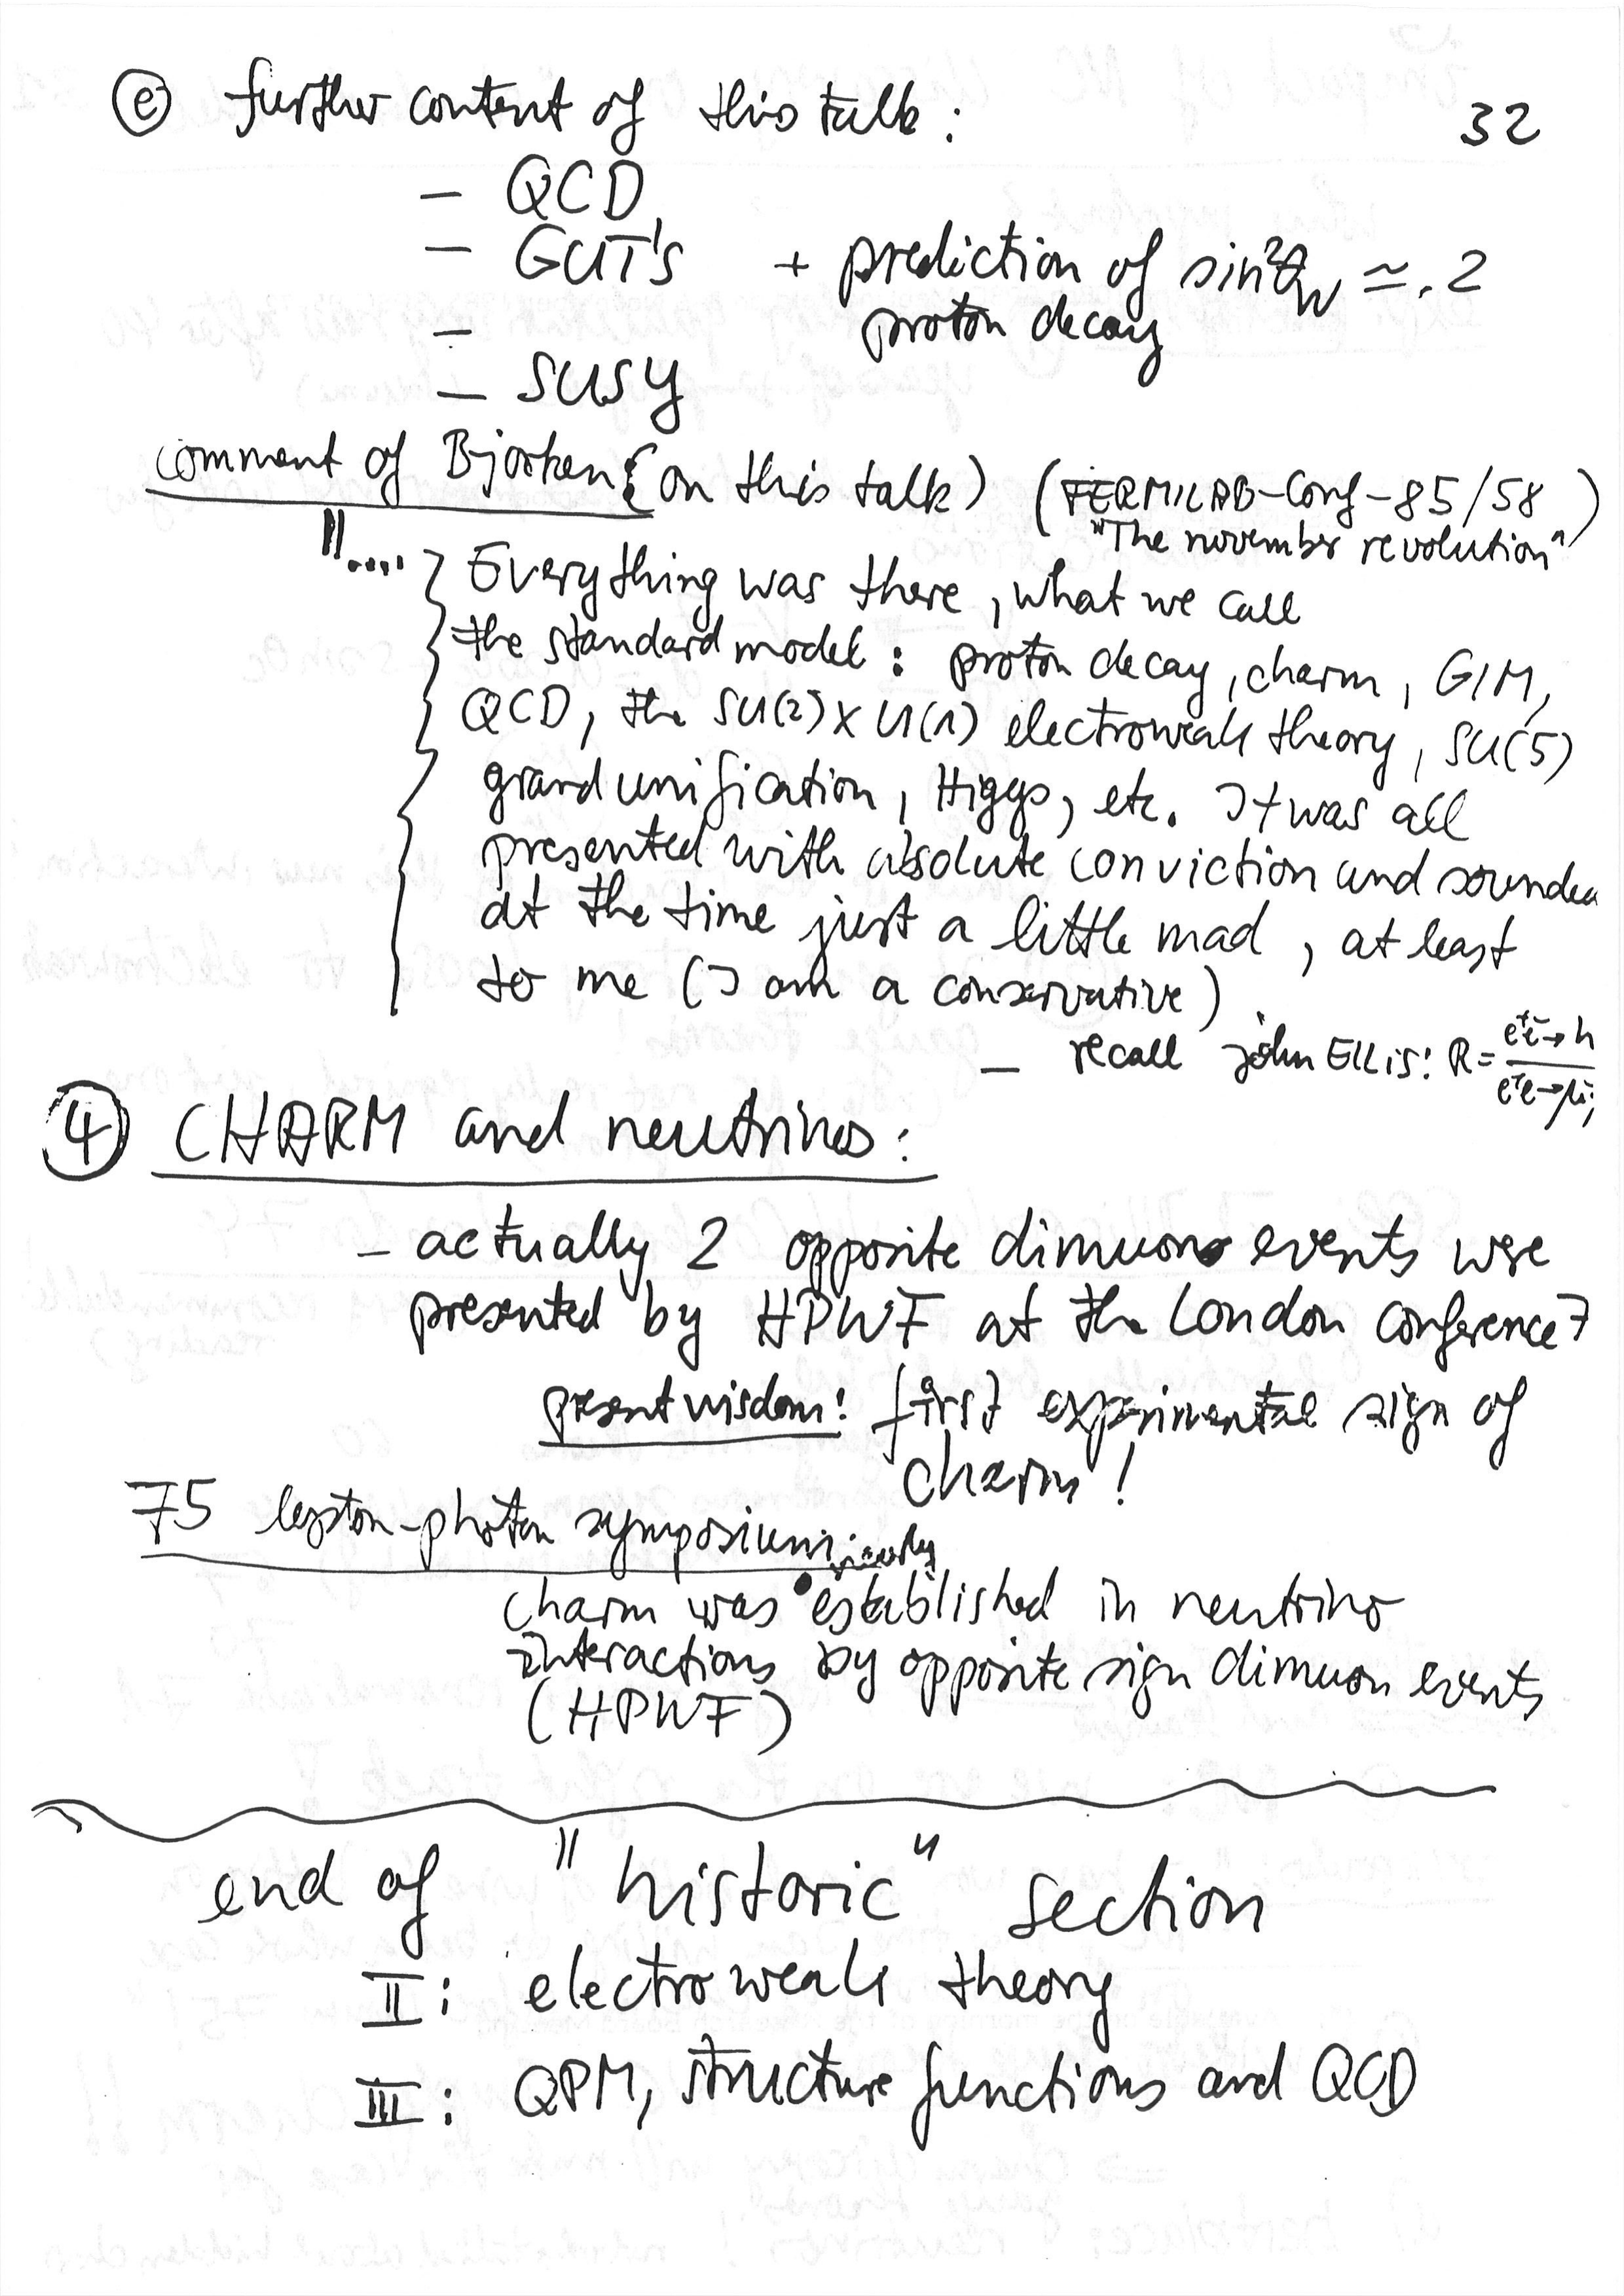 ⓔ further content of this talk: 32
– QCD
– GUT's + prediction of sin²θ_W ≃ .2
– proton decay
– SUSY
comment of Bjorken (on this talk) (FERMILAB-Conf-85/58
"The november revolution")
"....
Everything was there, what we call
the standard model: proton decay, charm, GIM,
QCD, the SU(2)×U(1) electroweak theory, SU(5)
grand unification, Higgs, etc. It was all
presented with absolute conviction and sounded
at the time just a little mad, at least
to me (I am a conservative)
– recall john Ellis: R = e⁺e⁻→h / e⁺e⁻→μμ
④ CHARM and neutrinos:
– actually 2 opposite dimuon events wre
presented by HPWF at the London conference
present wisdom: first experimental sign of
charm!
75 lepton-photon symposium:
charm was established in neutrino
interactions by opposite sign dimuon events
(HPWF)
end of "historic" section
II: electroweak theory
III: QPM, structure functions and QCD